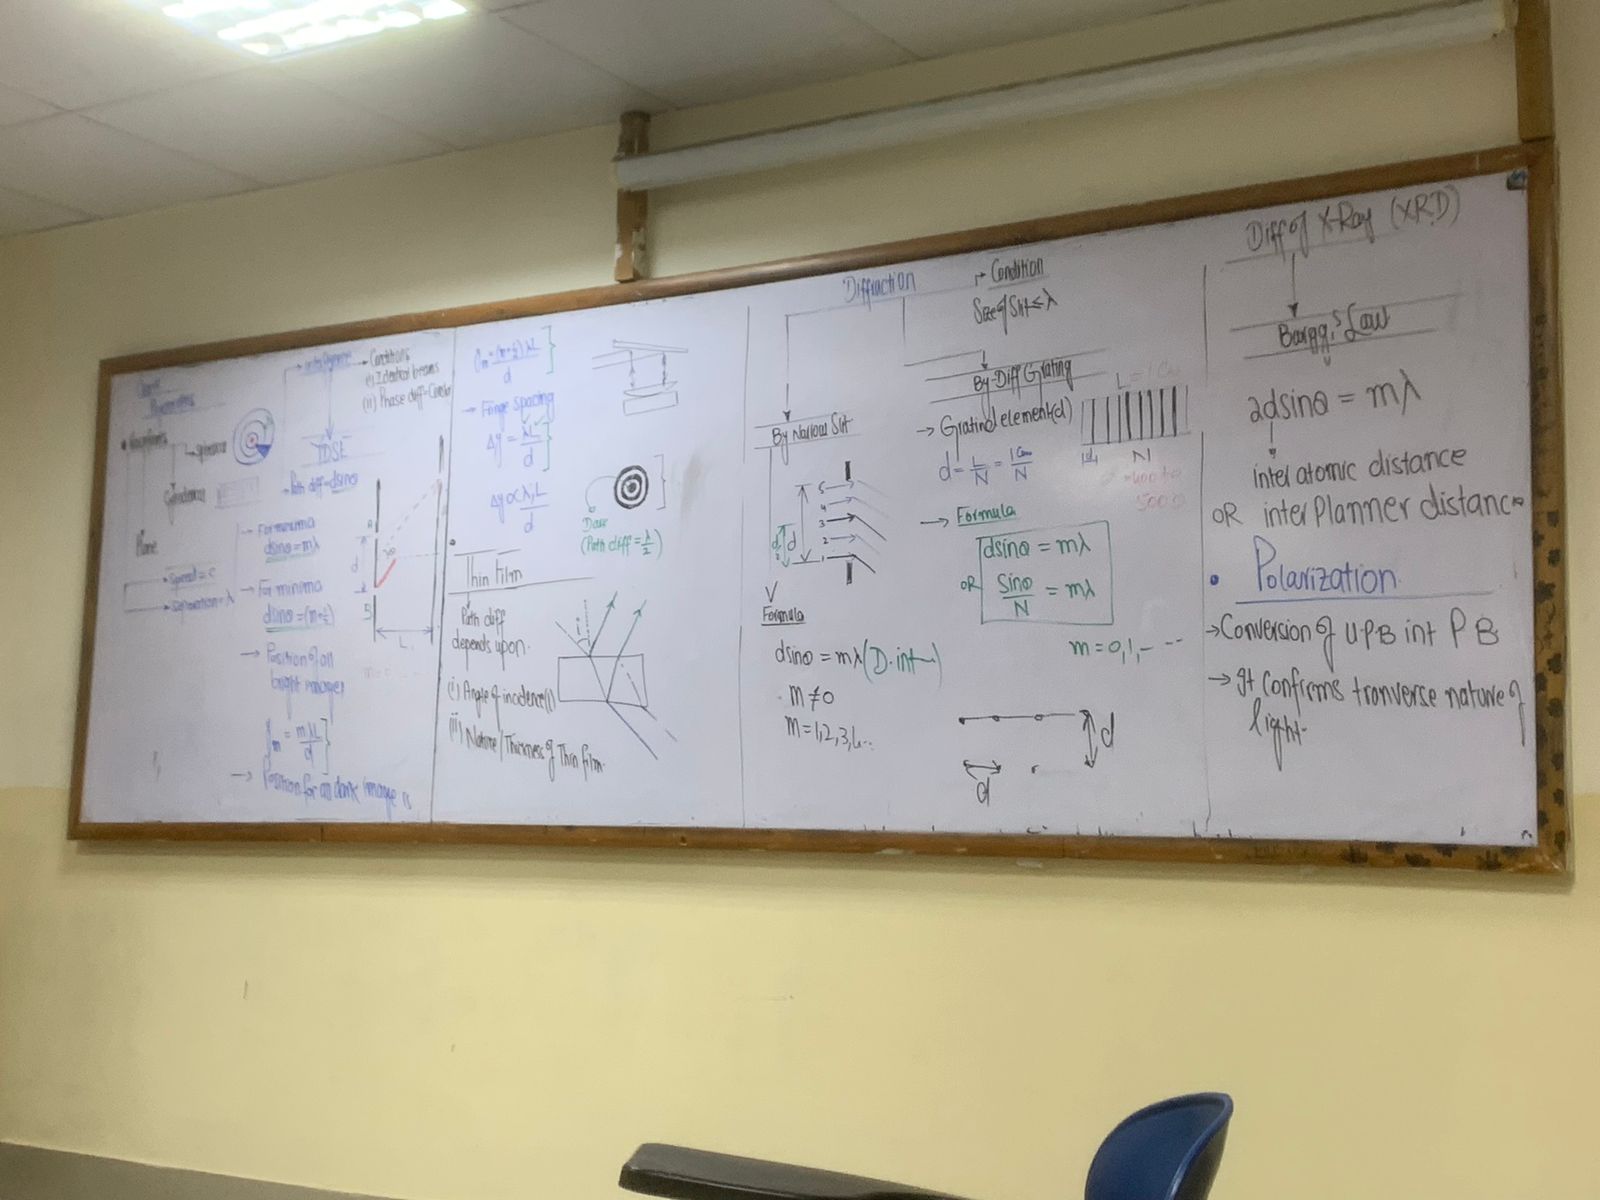 interference → Conditions
(i) Identical beams
(ii) Phase diff-Const
Wavefronts
spherical
Cylindrical
Plane
→ Speed = c
→ Separation = λ
YDSE
→ Path diff = dsinθ
→ For minima
dsinθ = mλ
→ For minima
dsinθ = (m+½)
→ Position of all
bright images
yₘ = mλL/d
→ Position for all dark images is
A
d
B
L
yₘ = (m+½) λL/d
→ Fringe spacing
Δy = λL/d
Δy ∝ λ, L/d
Dark
(Path diff = λ/2)
Thin Film
Path diff
depends upon.
(i) Angle of incidence(i)
(ii) Nature/Thickness of Thin film.
Diffraction
→ Condition
Size of Slit ≤ λ
By Narrow Slit
5
4
3
2
1
d/2
d
Formula
dsinθ = mλ (D.int→)
m ≠ 0
m = 1,2,3,...
By-Diff Grating
→ Gratind element(d)
d = L/N = 1cm/N
L = 1Cm
d
N
400 to
500
→ Formula
dsinθ = mλ
OR sinθ/N = mλ
m = 0,1,- --
d
d
Diff of X-Ray (XRD)
Bargg,s Law
2dsinθ = mλ
inter atomic distance
OR inter Planner distance
• Polarization.
→ Conversion of U.P.B int P B
→ It Confirms tranverse nature of
light.